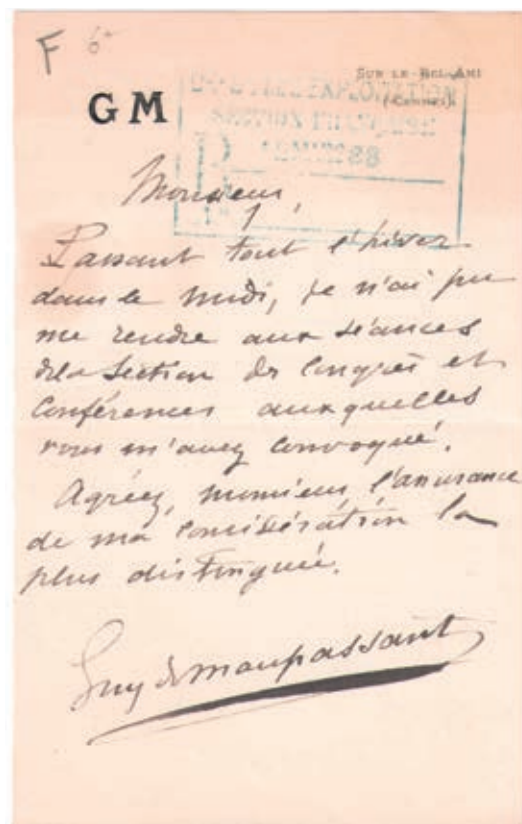 F
SUR LE BEL-AMI
(CANNES).
GM
EXPLOITATION
SECTION FRANÇAISE
Monsieur,
Passant tout l'hiver
dans le midi, je n'ai pu
me rendre aux séances
de la Section des Congrès et
Conférences auxquelles
vous m'avez convoqué.
Agréez, monsieur, l'assurance
de ma considération la
plus distinguée.
Guy de Maupassant